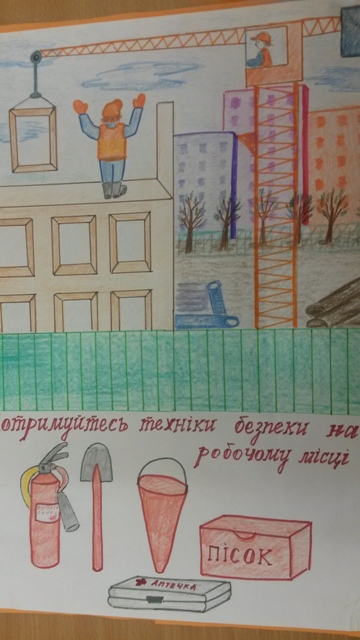 отримуйтесь техніки безпеки на
робочому місці
ПІСОК
АПТЕЧКА